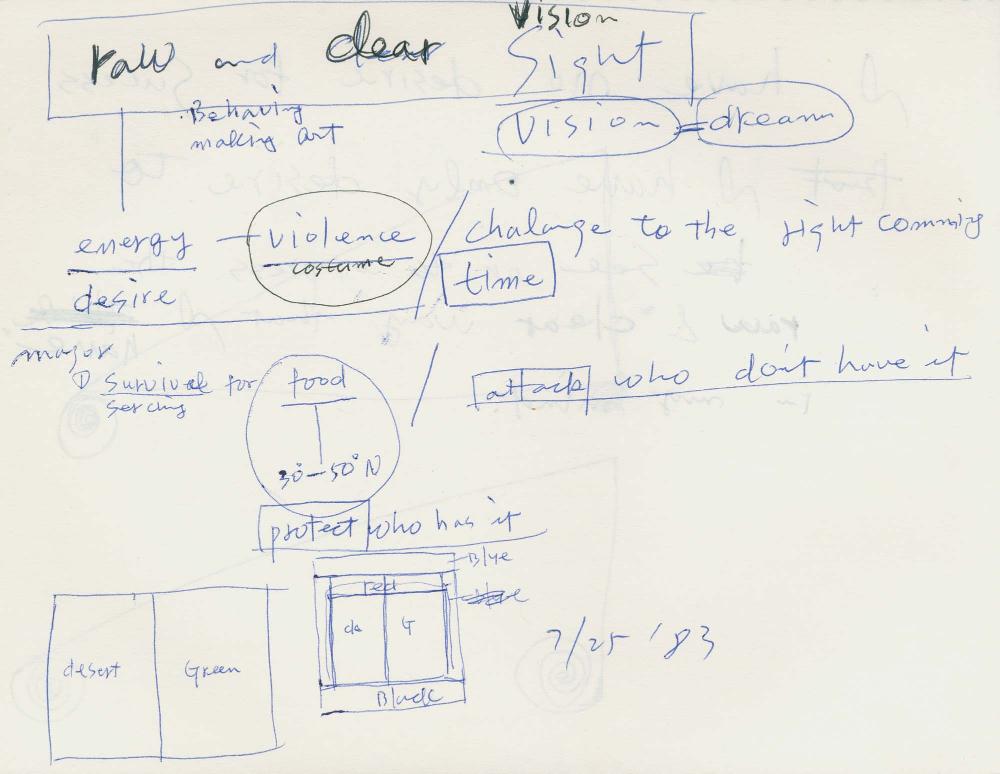 Vision
raw and clear Sight
Behaving
making art
Vision = dream
energy — violence / chalange to the right comming
costume
desire
time
major
① Survival for food / attack who don't have it
serching
30°—50°N
protect who has it
Blue
red
de G
Black
desert Green
7/25 '83